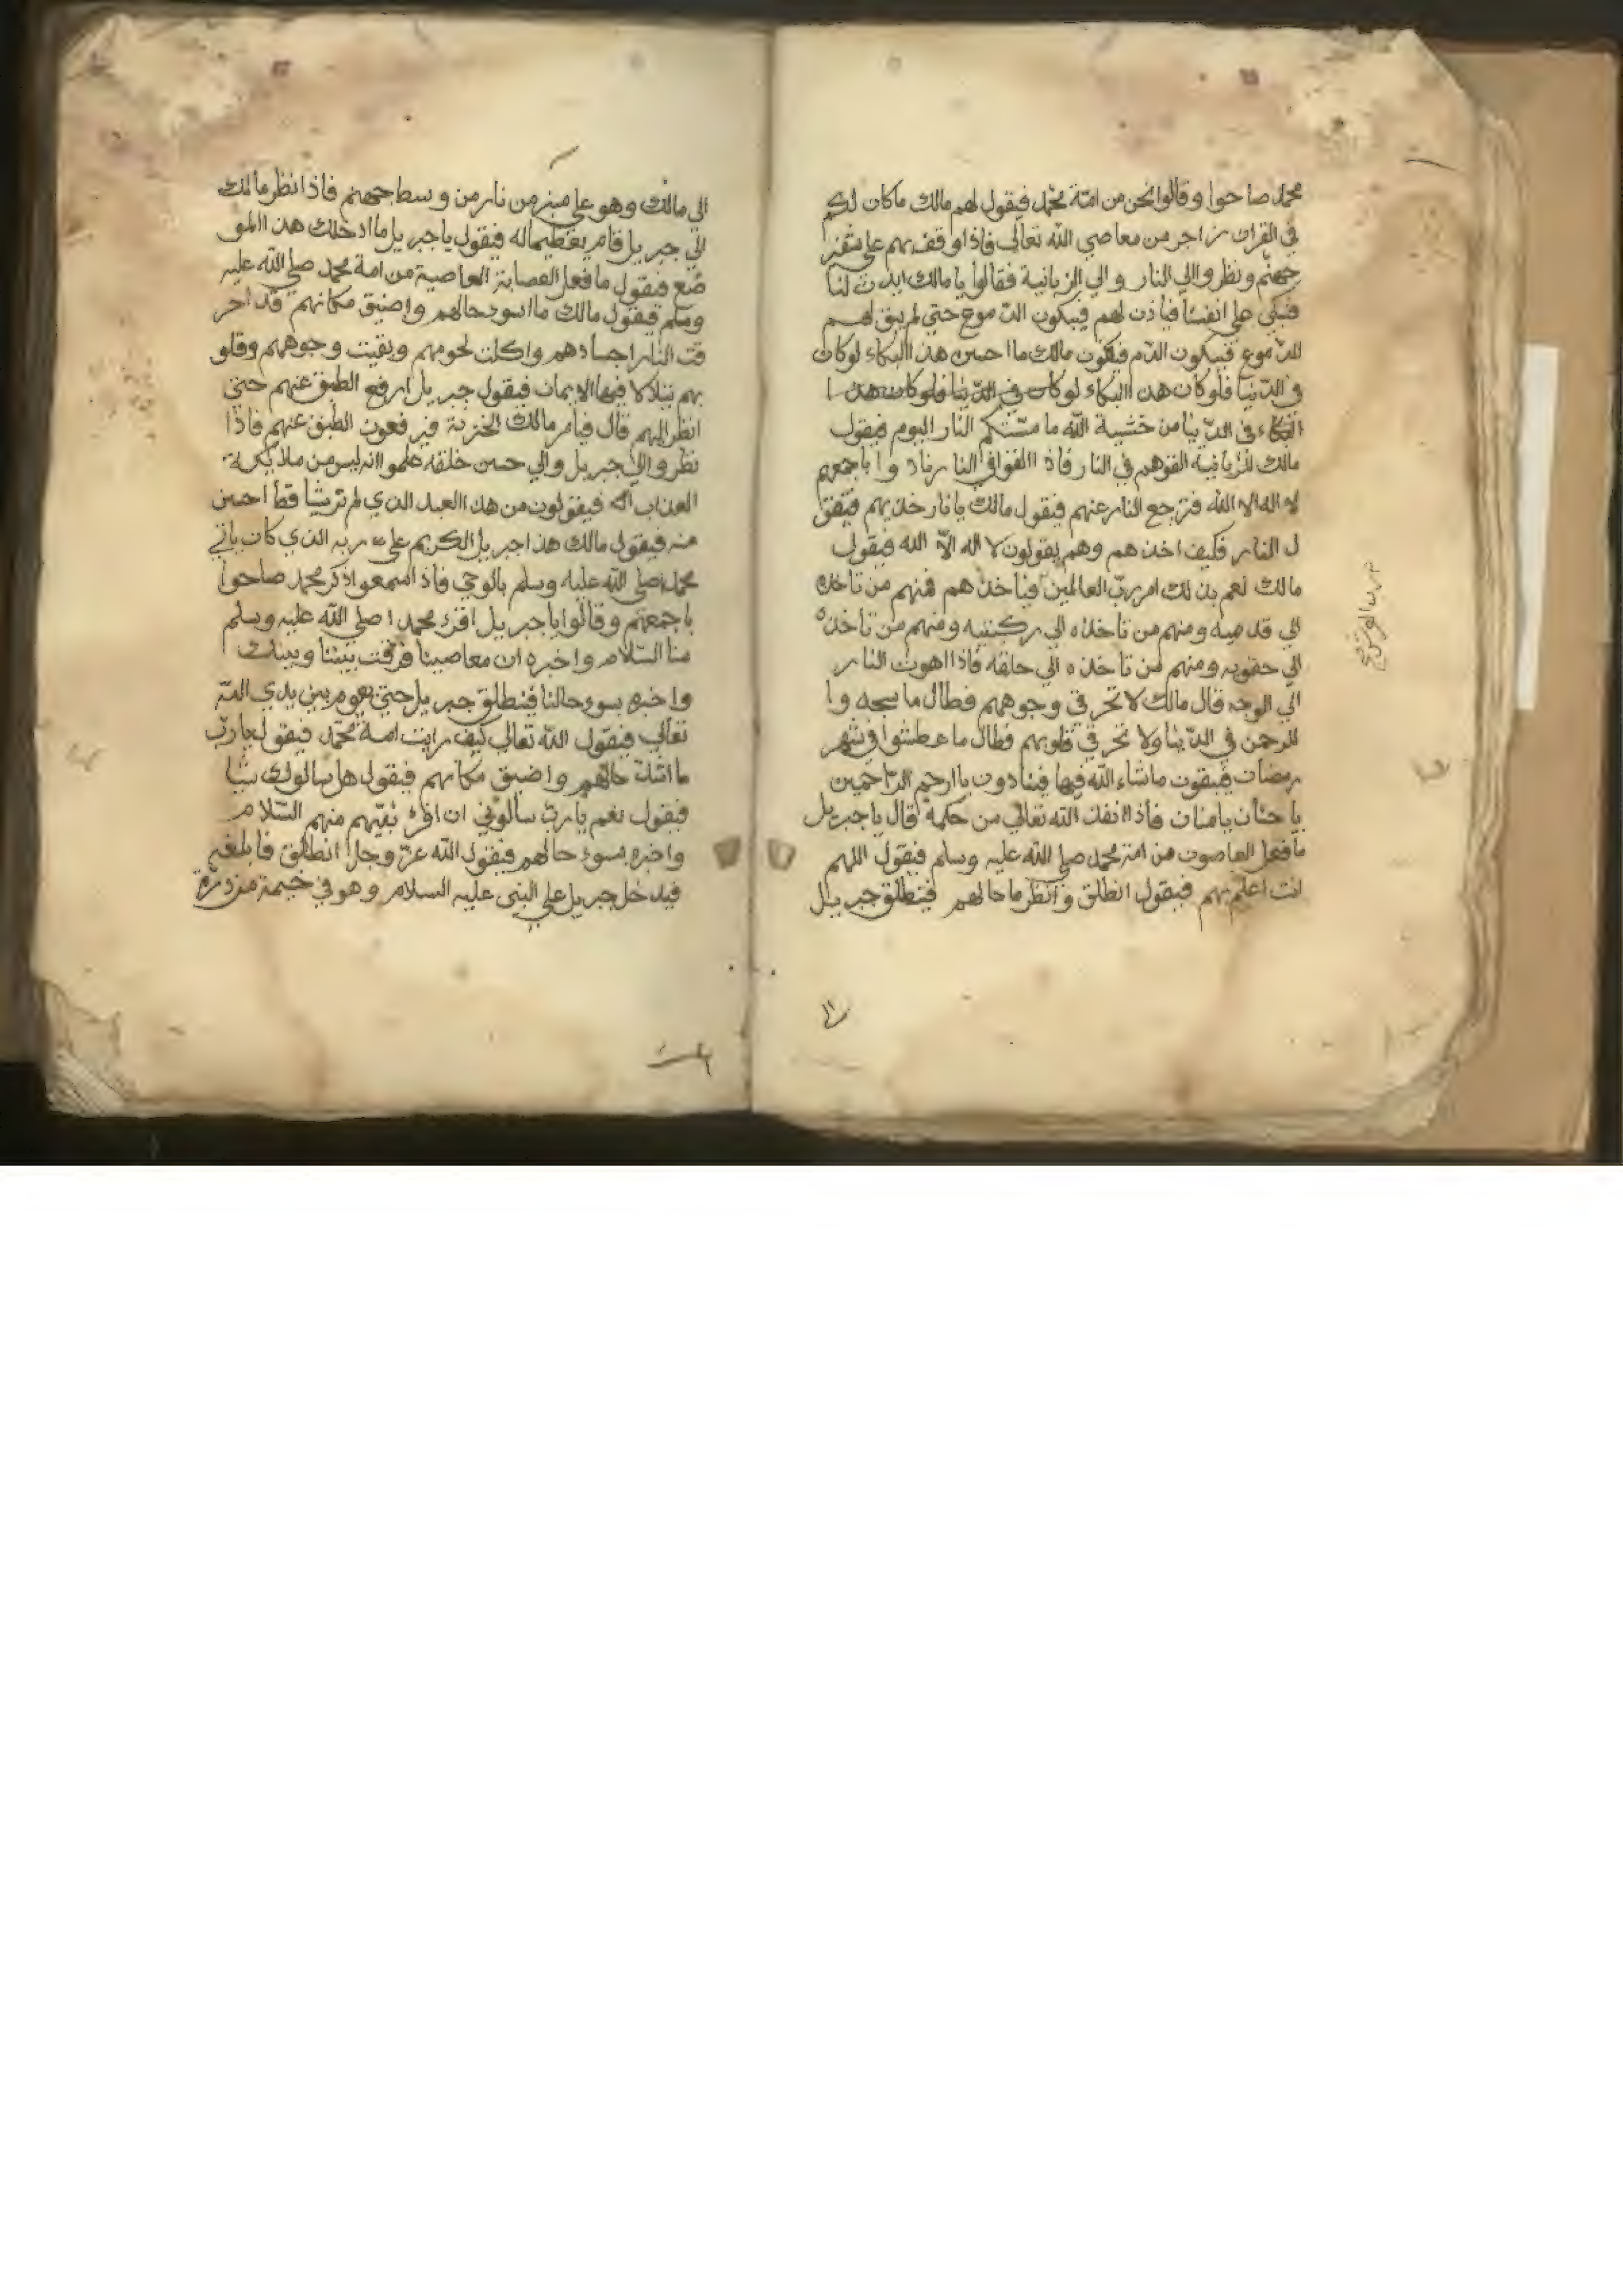 محمد صاحوا وقالوا نحن من امة محمد فيقول لهم مالك ماكان لكم
في القران زاجر من معاصي الله تعالى فاذا وقف بهم على شفير
جهنم ونظروا الي النار والي الزبانية فقالوا يا مالك ايذن لنا
فنبكي على انفسنا فياذن لهم فيبكون الدموع حتي لم يبق لهم
الدموع فيبكون الدم فيقون مالك ما احسن هذا البكاء لوكان
في الدنيا فلوكان هذا البكاء لوكان في الدنيا فلوكان هذا
البكاء في الدنيا من خشية الله ما مسّتكم النار اليوم فيقول
مالك للزبانية القوهم في النار فاذا القوا في النار نادوا باجمعهم
لا اله الا الله فترجع النار عنهم فيقول مالك يا نار خذيهم فتقو
ل النار فكيف اخذهم وهم يقولون لا اله الا الله فيقول
مالك نعم بذلك امر رب العالمين فياخذهم فمنهم من تاخذه
الي قدميه ومنهم من تاخذه الي ركبتيه ومنهم من تاخذه
الي حقويه ومنهم من تاخذه الي حلقه فاذا اهوت النار
الي الوجه قال مالك لا تحرقي وجوههم فطال ما سجدوا
للرحمن في الدنيا ولا تحرقي قلوبهم فطال ما عطشوا في شهر
رمضان فيبقون ماشاء الله فيها فينادون يا ارحم الراحمين
يا حنان يا منان فاذا انفذ الله تعالي من حكمه قال يا جبريل
ما فعل العاصون من امة محمد صلي الله عليه وسلم فيقول اللهم
انت اعلم بهم فيقول انطلق وانظر ما حالهم فينطلق جبريل
الي مالك وهو على منبر من نار من وسط جهنم فاذا نظر مالك
الي جبريل قام يعظيما له فيقول يا جبريل ما ادخلك هذا المو
ضع فيقول ما فعل العصابة العاصية من امة محمد صلي الله عليه
وسلم فيقول مالك ما اسوء حالهم واضيق مكانهم قد احر
قت النار اجسادهم واكلت لحومهم وبقيت وجوههم وقلو
بهم يتلالا فيها الايمان فيقول جبريل ارفع الطبق عنهم حتي
انظر اليهم قال فيامر مالك الخزنة فيرفعون الطبق عنهم فاذا
نظروا الي جبريل والي حسن خلقه علموا انه ليس من ملايكة
العذاب فيقولون من هذا العبد الذي لم نر شيا قط احسن
منه فيقول مالك هذا جبريل الكريم على ربه الذي كان ياتي
محمدا صلي الله عليه وسلم بالوحي فاذا سمعوا ذكر محمد صاحوا
باجمعهم وقالوا يا جبريل اقرء محمدا صلي الله عليه وسلم
منا السلام واخبره ان معاصينا فرقت بيننا وبينك
واخبره بسوء حالنا فينطلق جبريل حتي يقوم بين يدي الله
تعالي فيقول الله تعالي كيف رايت امة محمد فيقول يا رب
ما اشد حالهم واضيق مكانهم فيقول هل سالوك شيا
فيقول نعم يا رب سالوني ان اقرء نبيهم منهم السلام
واخبره بسوء حالهم فيقول الله عز وجل انطلق فابلغهم
فيدخل جبريل على النبي عليه السلام وهو في خيمة من درة